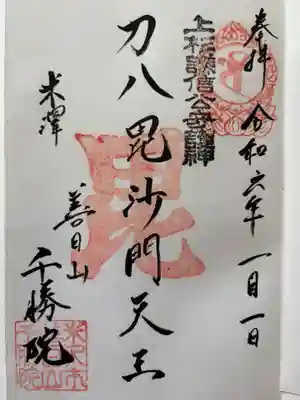 奉拝 令和六年一月一日
上杉謙信公守護神
刀八毘沙門天王
毘
米澤
善日山
千勝院